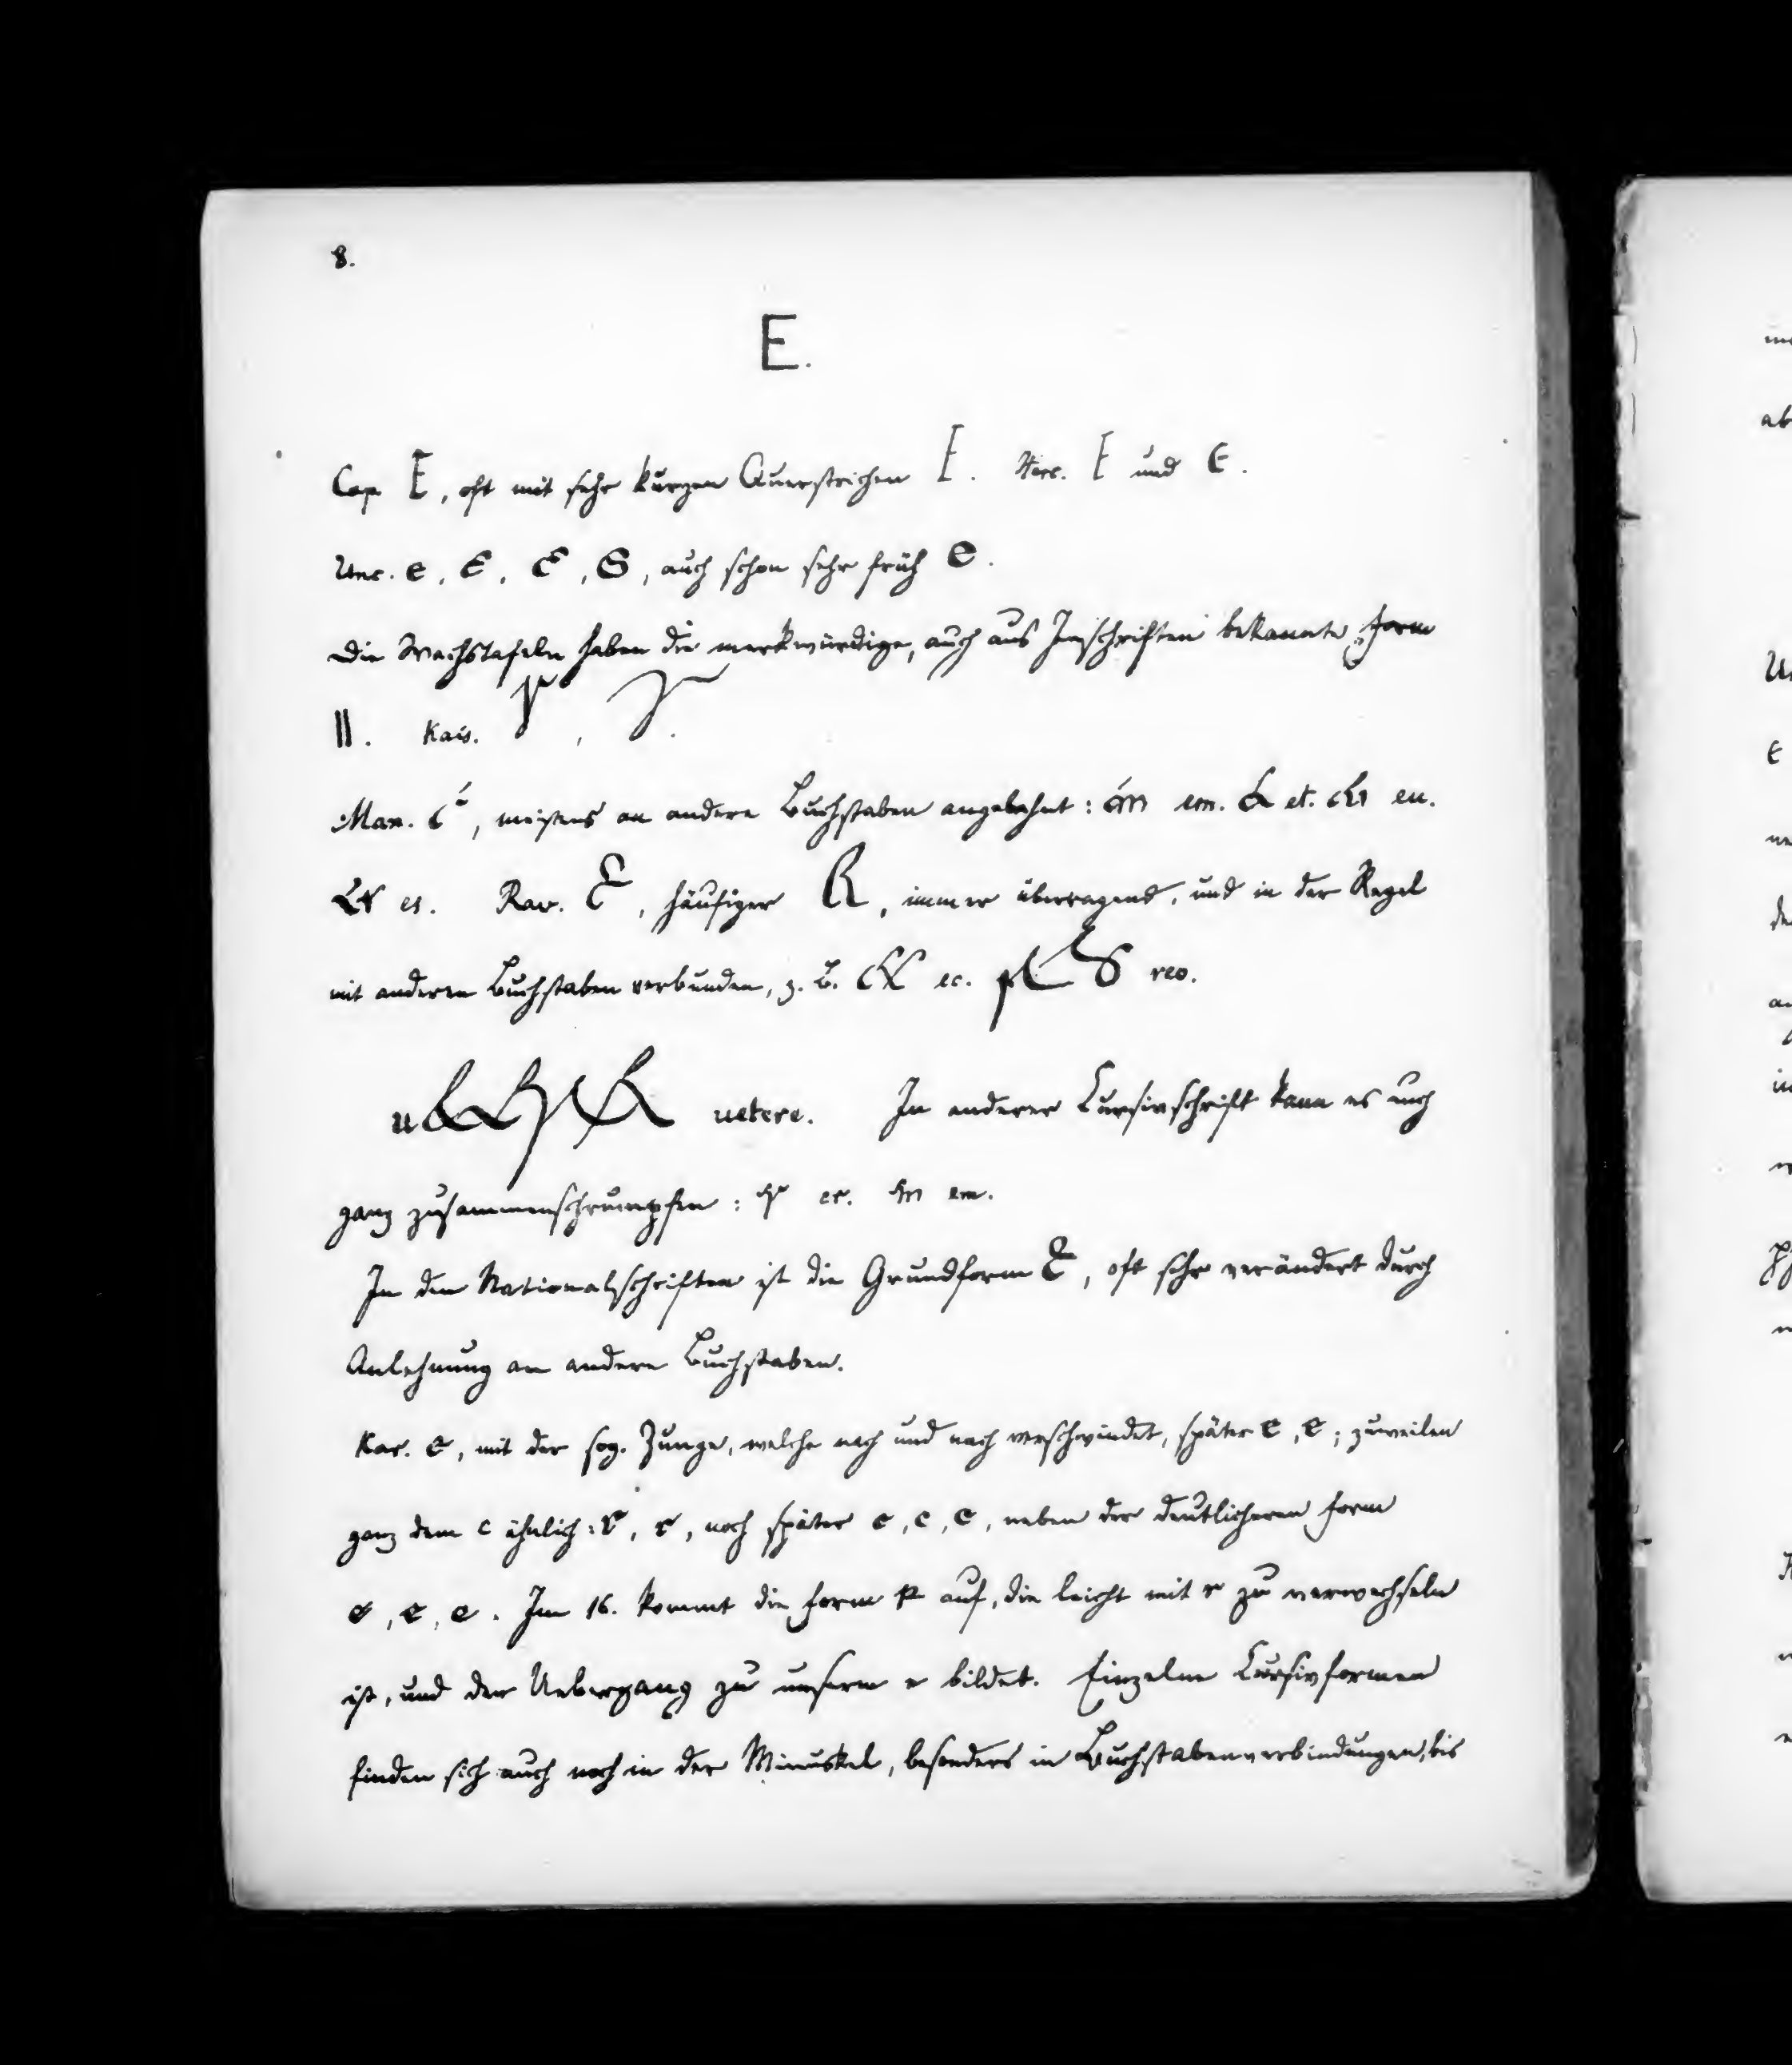 8.
E.
Cap. E, oft mit sehr kurzen Querstrichen E. Herc. E und E.
Unc. e, E, E, E, auch schon sehr früh e.
Die Wachstafeln haben die merkwürdige, auch aus Inschriften bekannte Form
II. Kais.
Mar. , meistens an andere Buchstaben angelehnt: em. et. en.
es. Rav. , häufiger , immer überragend, und in der Regel
mit anderen Buchstaben verbunden, z. B. ec. reo.
uetere. In anderer Cursivschrift kann es auch
ganz zusammenschrumpfen: er. em.
In den Nationalschriften ist die Grundform , oft sehr verändert durch
Anlehnung an andere Buchstaben.
Kar. e, mit der sog. Zunge, welche nach und nach verschwindet, später e, e; zuweilen
ganz dem c ähnlich: , , noch später e, c, e, neben der deutlicheren Form
e, e, e. Im 16. kommt die Form auf, die leicht mit r zu verwechseln
ist, und den Uebergang zu unserm e bildet. Einzelne Cursivformen
finden sich auch noch in der Minuskel, besonders in Buchstabenverbindungen, bis